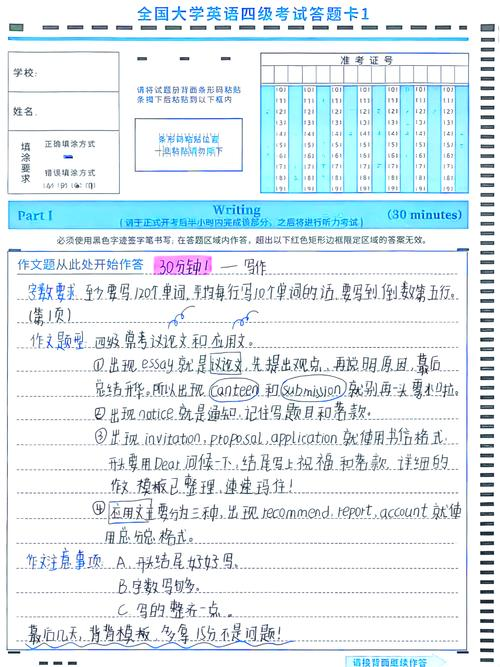 全国大学英语四级考试答题卡1
学校:
姓名:
填涂要求
正确填涂方式
错误填涂方式
请将试题册背面条形码粘贴
条揭下后粘贴到以下框内
条形码粘贴位置
准考证号
[0] [0] [0] [0] [0] [0] [0] [0]
[1] [1] [1] [1] [1] [1] [1] [1]
[2] [2] [2] [2] [2] [2] [2] [2]
[3] [3] [3] [3] [3] [3] [3] [3]
[4] [4] [4] [4] [4] [4] [4] [4]
[5] [5] [5] [5] [5] [5] [5] [5]
[6] [6] [6] [6] [6] [6] [6] [6]
[7] [7] [7] [7] [7] [7] [7] [7]
[8] [8] [8] [8] [8] [8] [8] [8]
[9] [9] [9] [9] [9] [9] [9] [9]
Part I Writing (30 minutes)
(请于正式开考后半小时内完成该部分，之后将进行听力考试)
必须使用黑色字迹签字笔书写，在答题区域内作答，超出以下红色矩形边框限定区域的答案无效。
作文题从此处开始作答 30分钟! — 写作
字数要求 至少要写120个单词，平均每行写10个单词的话，要写到倒数第五行。
(第1页)
作文题型 四级常考议论文和应用文。
① 出现essay就是议论文，先提出观点，再说明原因，最后
总结升华。所以出现canteen和submission就别再
② 出现notice就是通知，记住写题目和落款。
③ 出现invitation, proposal, application就使用书信格式
开头要用Dear问候一下，结尾写上祝福和落款，详细的
作文模板已整理，速速码住!
④ 应用文主要分为三种，出现recommend, report, account就使
用总分总格式。
作文注意事项 A. 开头结尾好好写。
B. 字数写够多。
C. 写的整齐一点。
最后几天，背背模板，多拿15分不是问题!
请接背面继续作答